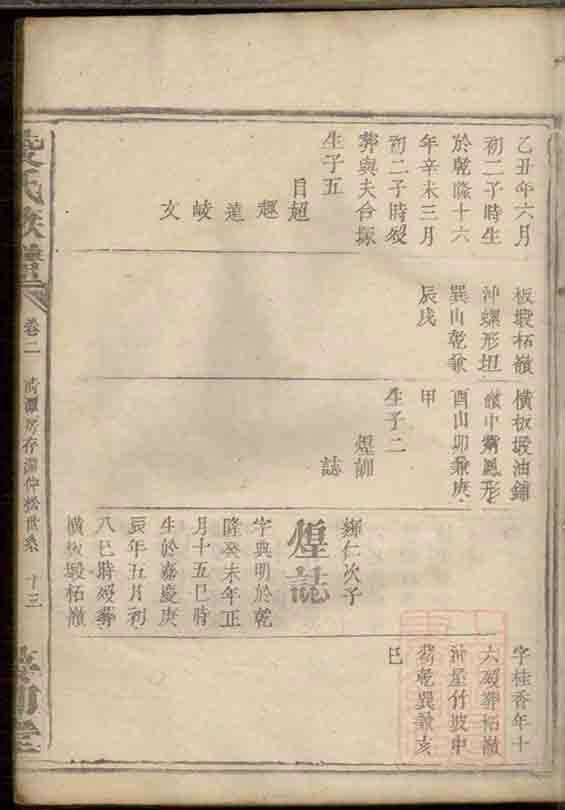 乙丑年六月
初二子時生
於乾隆十六
年辛未三月
初二子時歿
葬與夫合塚
生子五
目超
趣
達
峻
文
板塅柘嶺
沖螺形坦
巽山乾兼
辰戌
橫板塅油鋪
嶺中舞鳳形
酉山卯兼庚
甲
生子二
煌訓
誌
輝仁次子
煌誌
字典明於乾
隆癸未年正
月十五巳時
生於嘉慶庚
辰年五月初
八巳時歿葬
橫板塅柘嶺
字桂香年十
六歿葬柘嶺
沖屋竹坡中
葬乾巽兼亥
巳
氏族譜
卷二
房存淵仲松世系
十三